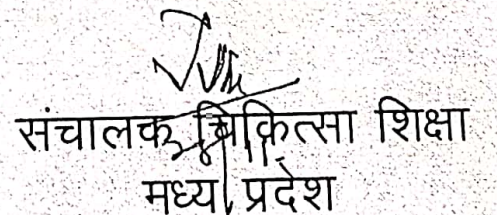 संचालक, चिकित्सा शिक्षा
मध्य प्रदेश